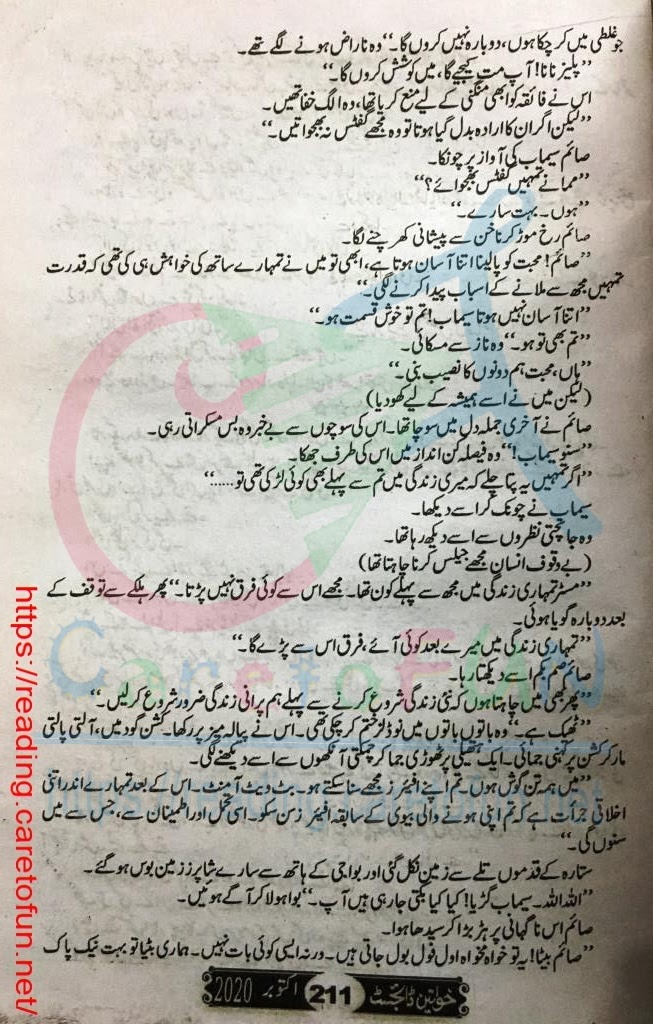 جو غلطی میں کر چکا ہوں، دوبارہ نہیں کروں گا۔‘‘ وہ ناراض ہونے لگے تھے۔
’’پلیز نانا! آپ مت کیجیے گا، میں کوشش کروں گا۔‘‘
اس نے فائقہ کو ابھی منگنی کے لیے منع کر دیا تھا، وہ الگ خفا تھیں۔
’’لیکن اگر ان کا ارادہ بدل گیا ہوتا تو وہ مجھے گفٹس نہ بھجواتیں۔‘‘
صائم سیماب کی آواز پر چونکا۔
’’ممانے تمہیں گفٹس بھجوائے؟‘‘
’’ہوں۔ بہت سارے۔‘‘
صائم رخ موڑ کر ناخن سے پیشانی کھرچنے لگا۔
’’صائم! محبت کو پا لینا اتنا آسان ہوتا ہے، ابھی تو میں نے تمہارے ساتھ کی خواہش ہی کی تھی کہ قدرت
تمہیں مجھ سے ملانے کے اسباب پیدا کرنے لگی۔‘‘
’’اتنا آسان نہیں ہوتا سیماب! تم تو خوش قسمت ہو۔‘‘
’’تم بھی تو ہو۔‘‘ وہ ناز سے مسکائی۔
’’ہاں، محبت ہم دونوں کا نصیب بنی۔‘‘
(لیکن میں نے اسے ہمیشہ کے لیے کھو دیا)
صائم نے آخری جملہ دل میں سوچا تھا۔ اس کی سوچوں سے بے خبر وہ بس مسکراتی رہی۔
’’سنو سیماب!‘‘ وہ فیصلہ کن انداز میں اس کی طرف جھکا۔
’’اگر تمہیں یہ پتا چلے کہ میری زندگی میں تم سے پہلے بھی کوئی لڑکی تھی تو.....‘‘
سیماب نے چونک کر اسے دیکھا۔
وہ جانچتی نظروں سے اسے دیکھ رہا تھا۔
(بے وقوف انسان مجھے جیلس کرنا چاہتا تھا)
’’مسٹر تمہاری زندگی میں مجھ سے پہلے کون تھا۔ مجھے اس سے کوئی فرق نہیں پڑتا۔‘‘ پھر ہلکے سے توقف کے
بعد دوبارہ گویا ہوئی۔
’’تمہاری زندگی میں میرے بعد کوئی آئے، فرق اس سے پڑے گا۔‘‘
صائم صم بکم اسے دیکھتا رہا۔
’’پھر بھی میں چاہتا ہوں کہ نئی زندگی شروع کرنے سے پہلے ہم پرانی زندگی ضرور شروع کر لیں۔‘‘
’’ٹھیک ہے۔‘‘ وہ باتوں باتوں میں نوڈلز ختم کر چکی تھی۔ اس نے پیالہ میز پر رکھا۔ کشن گود میں، آلتی پالتی
مار کر کشن پر کہنی جمائی۔ ایک ہتھیلی پر ٹھوڑی جما کر چمکتی آنکھوں سے اسے دیکھنے لگی۔
’’میں ہمہ تن گوش ہوں۔ تم اپنے افیئرز مجھے سنا سکتے ہو۔ بٹ ویٹ آ منٹ۔ اس کے بعد تمہارے اندر اتنی
اخلاقی جرأت ہے کہ تم اپنی ہونے والی بیوی کے سابقہ افیئرز سن سکو۔ اسی تحمل اور اطمینان سے، جس سے میں
سنوں گی۔‘‘
ستارہ کے قدموں تلے سے زمین نکل گئی اور بوا جی کے ہاتھ سے سارے شاپرز زمین بوس ہو گئے۔
’’اللہ اللہ۔ سیماب گڑیا! کیا کیا بکتی جا رہی ہیں آپ۔‘‘ بوا ہولا کر آگے ہوئیں۔
صائم اس ناگہانی پر ہڑبڑا کر سیدھا ہوا۔
’’صائم بیٹا! یہ تو خواہ مخواہ اول فول بول جاتی ہیں۔ ورنہ ایسی کوئی بات نہیں۔ ہماری بٹیا تو بہت نیک پاک
خواتین ڈائجسٹ 211 اکتوبر 2020
https://reading.caretofun.net/
Caretofun
https://reading.caretofun.net